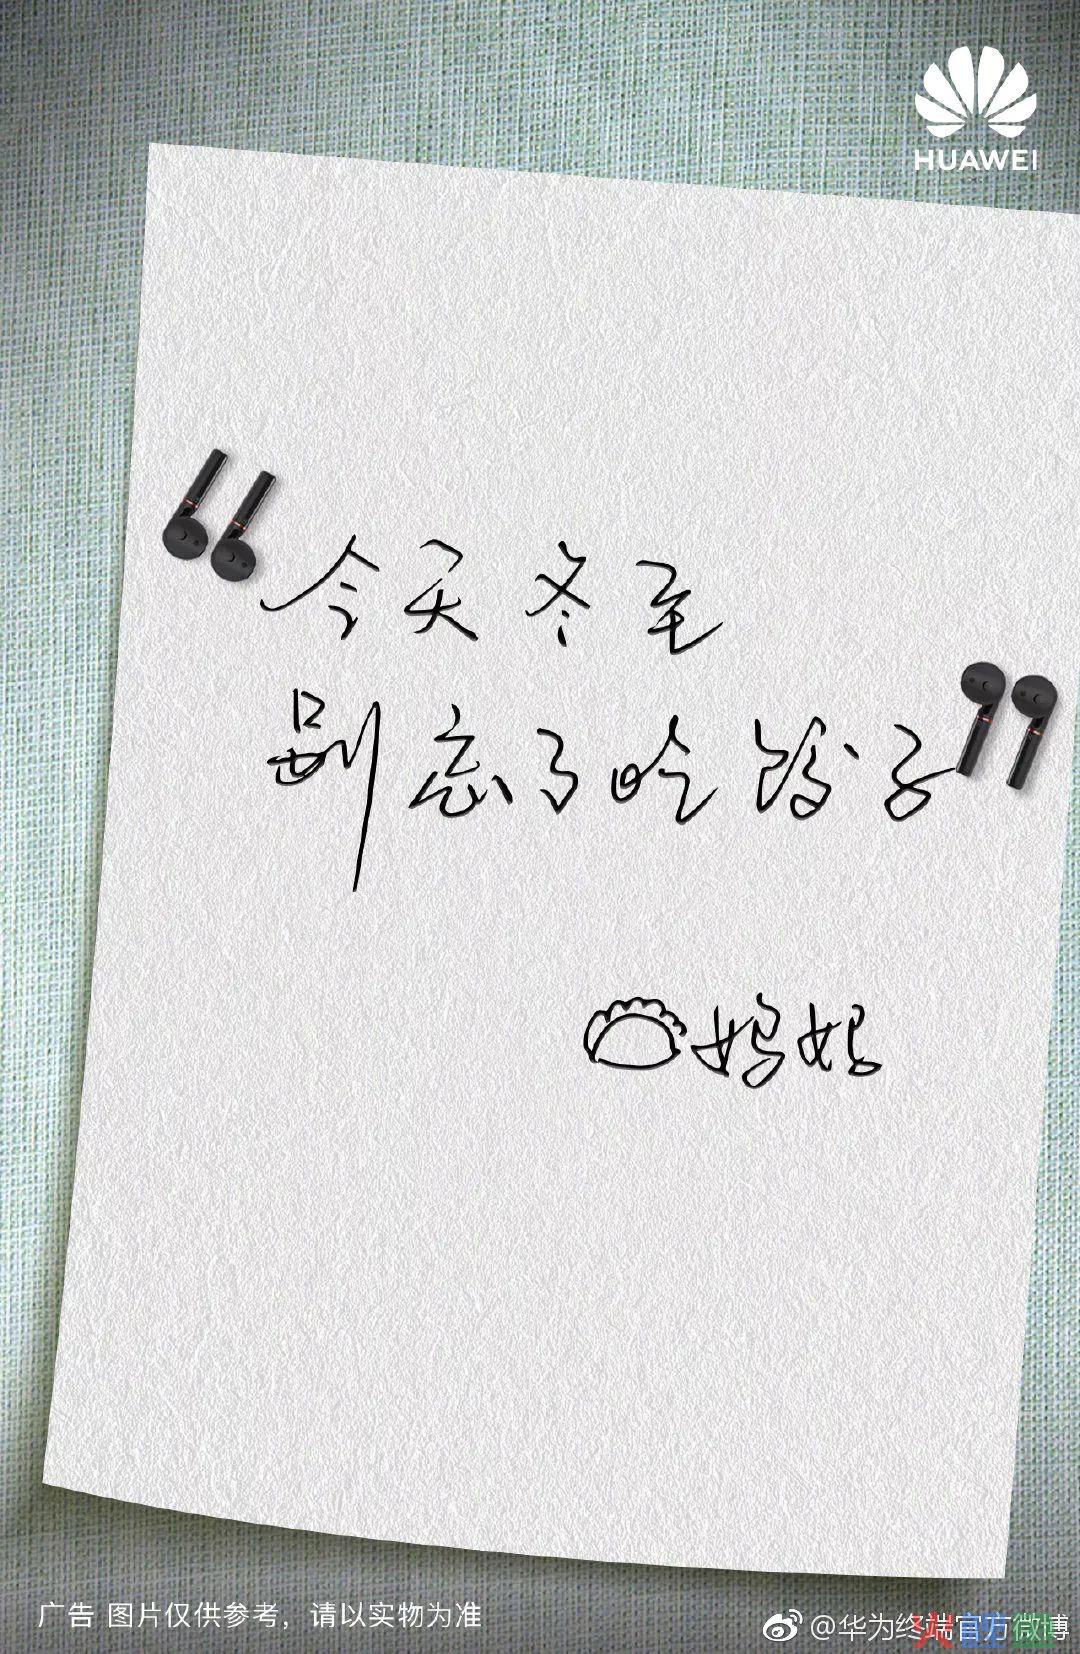 HUAWEI
今天冬至
别忘了吃饺子
妈妈
广告 图片仅供参考，请以实物为准
@华为终端官方微博